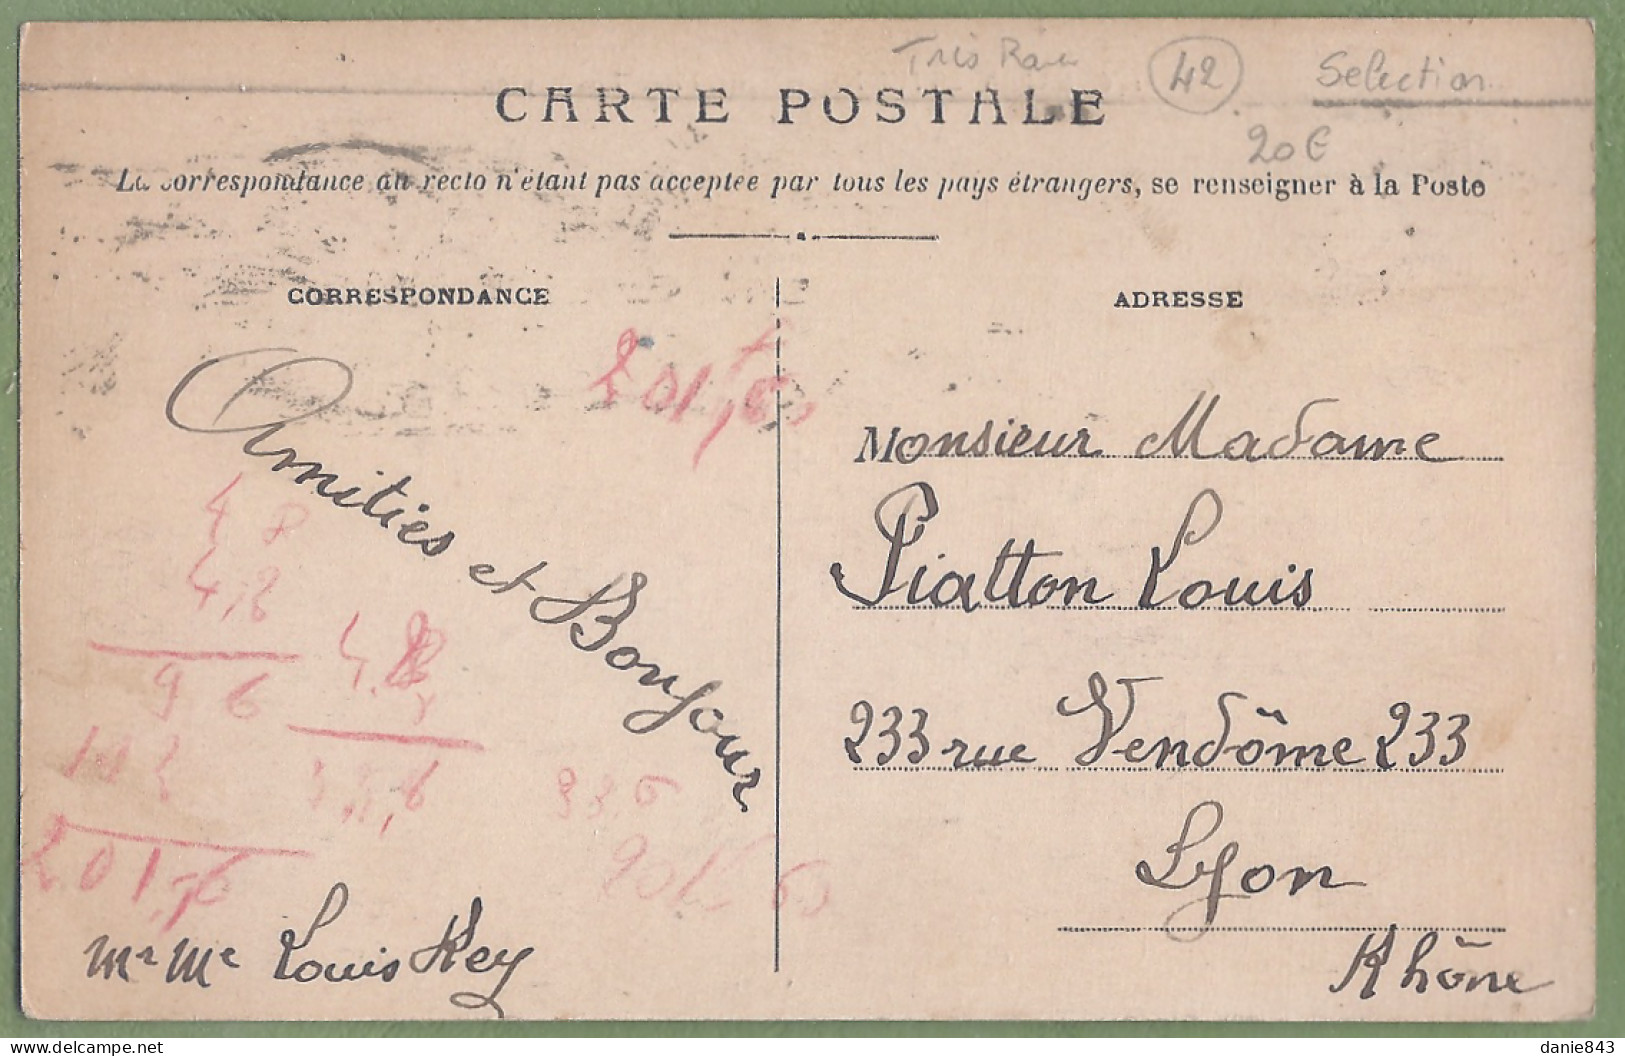 Très Rare
42
Selection
20€
CARTE POSTALE
La correspondance au recto n'étant pas acceptée par tous les pays étrangers, se renseigner à la Poste
CORRESPONDANCE
ADRESSE
201,60
Amitiés et Bonjour
48
4,8
96
201,6
33,6
Mr Me Louis Rey
Monsieur Madame
Piatton Louis
233 rue Vendôme 233
Lyon
Rhône
danie843